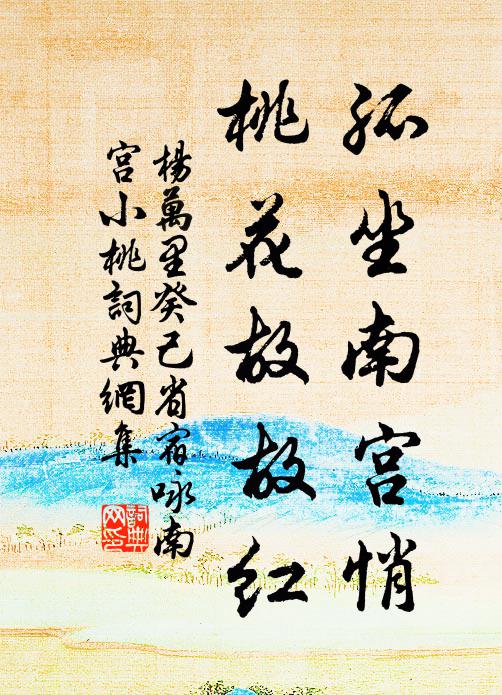 孤坐南宫悄
桃花故故红
楊萬里癸已省宿咏南
宫小桃詞典網集